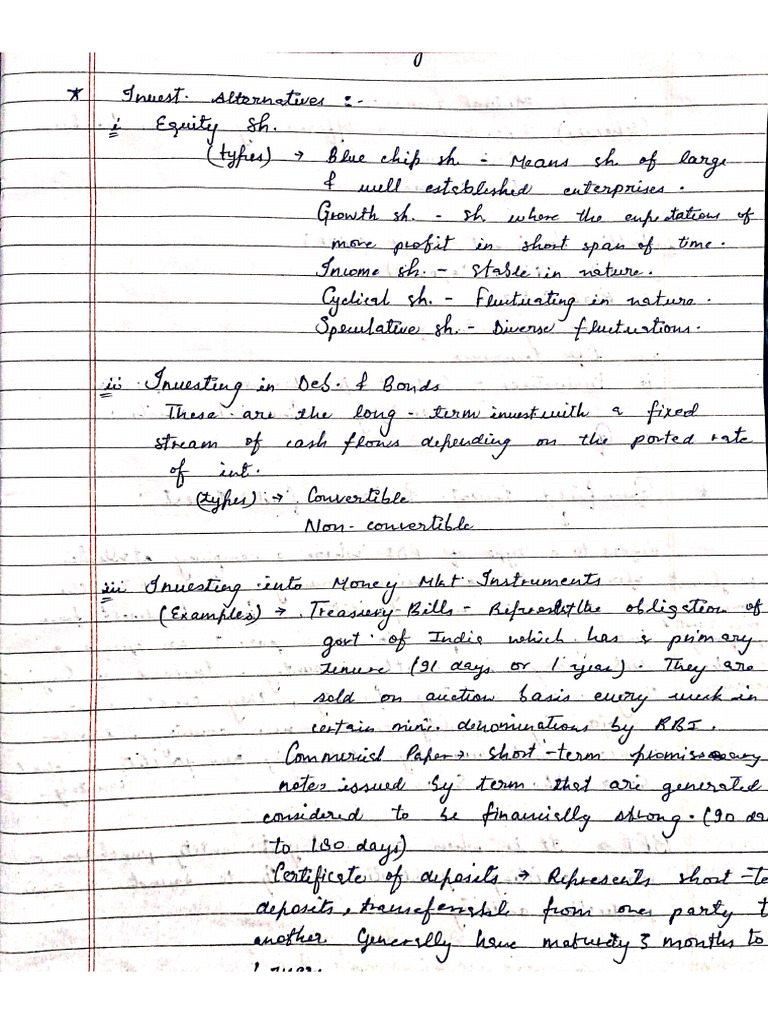 * Invest. Alternatives :-
i Equity Sh.
(types) → Blue chip sh - Means sh. of large
& well established enterprises.
Growth sh. - sh where the expetations of
more profit in short span of time.
Income sh. - Stable in nature.
Cyclical sh. - Fluctuating in nature.
Speculative sh. - Diverse fluctuations.
ii Investing in Deb. & Bonds
These are the long-term invest with a fixed
stream of cash flows depending on the ported rate
of int.
(types) → Convertible
Non-convertible
iii Investing into Money Mkt Instruments
(Examples) → Treasury Bills - Represent the obligation of
govt of India which has primary
tenure (91 days or 1 year). They are
sold on auction basis every week in
certain mini. denominations by RBI.
Commercial Paper → short-term promissory
notes issued by term that are generated
considered to be financially strong. (90 da
to 180 days)
Certificate of deposits → Represents short-te
deposits, transferrable from one party t
another Generally have maturity 3 months to